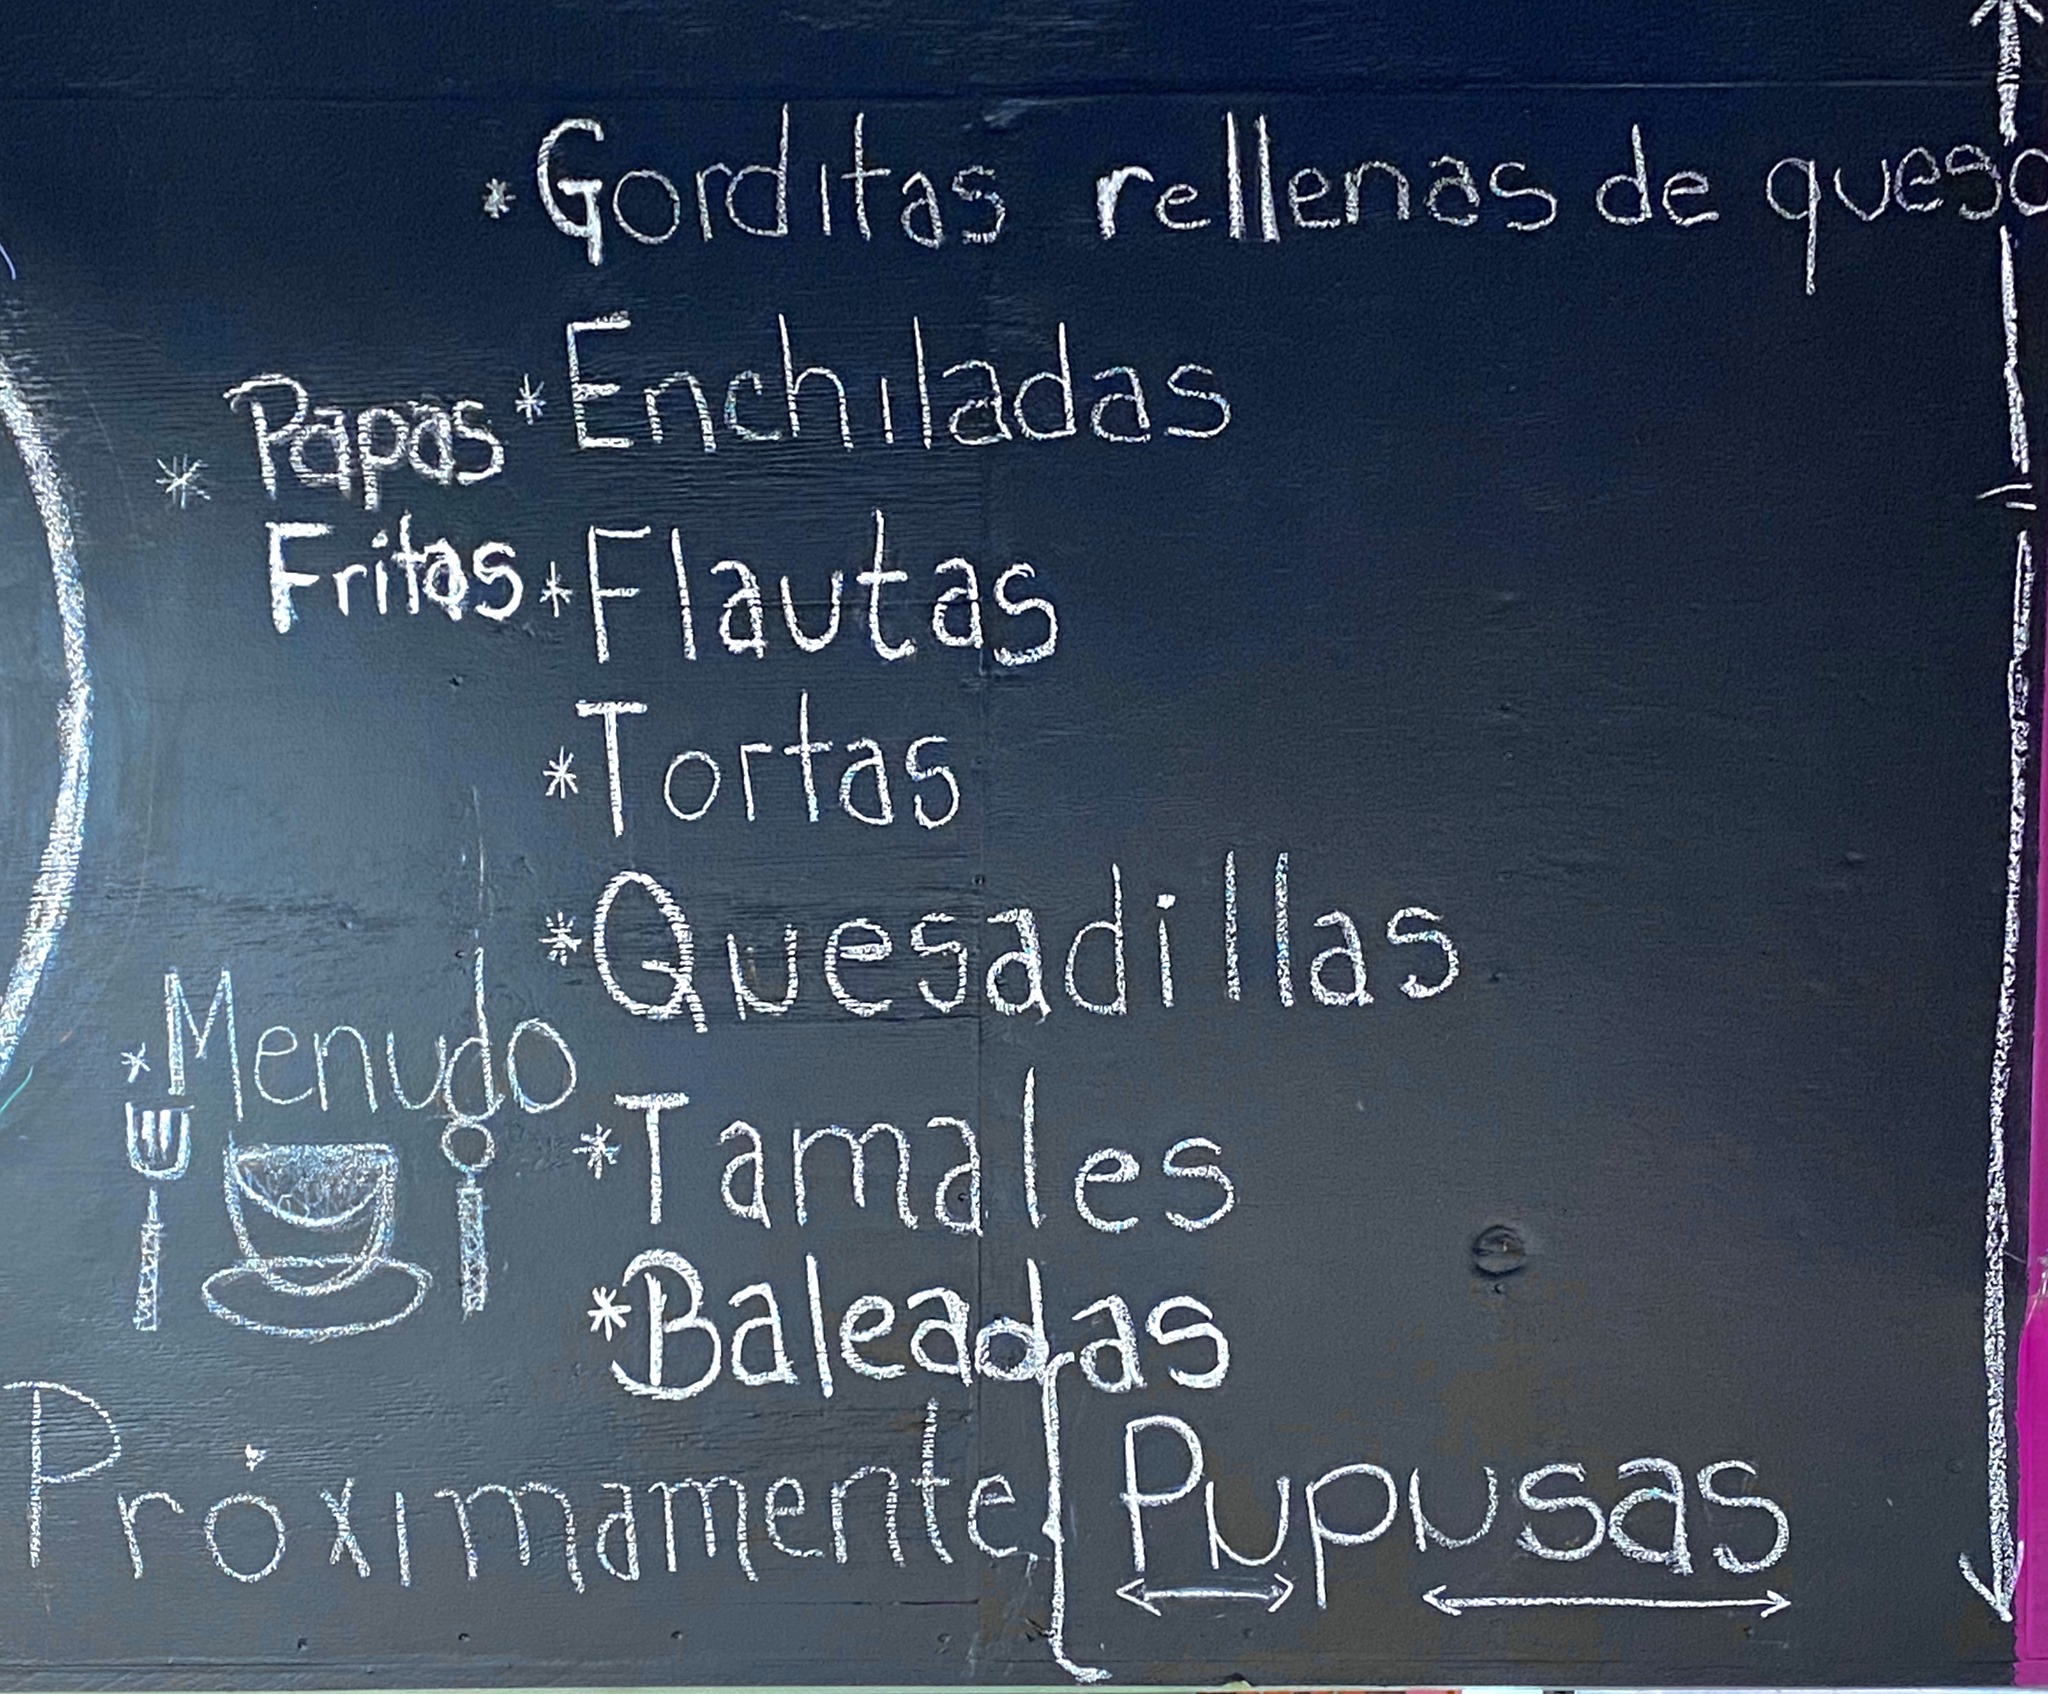 * Gorditas rellenas de queso
* Enchiladas
* Papas
Fritas
* Flautas
* Tortas
* Quesadillas
* Menudo
* Tamales
* Baleadas
Próximamente { Pupusas